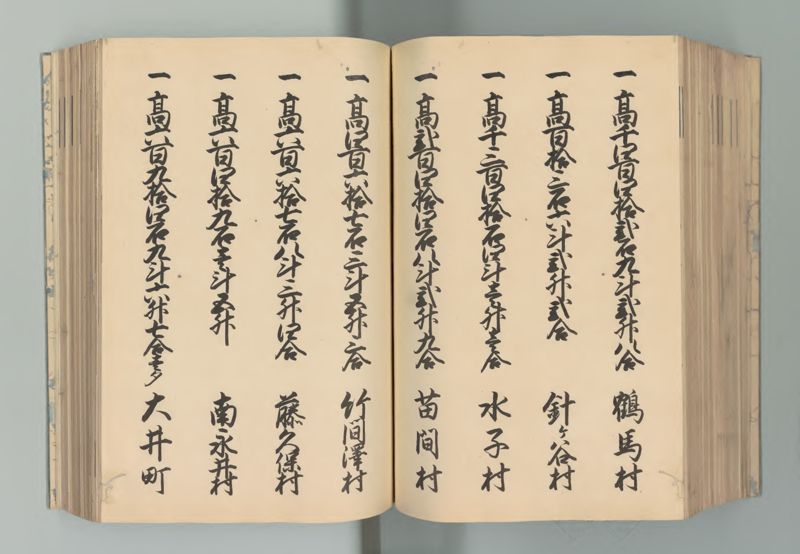 一 高千四百四拾弐石九斗弐升八合 鶴馬村
一 高百拾三石六斗弐升弐合 針ヶ谷村
一 高千三百四拾石四斗壱升壱合 水子村
一 高弐百四拾四石八斗弐升九合 苗間村
一 高四百六拾七石三斗五升三合 竹間澤村
一 高六百六拾七石八斗三升四合 藤久保村
一 高六百四拾九石壱斗五升 南永井村
一 高六百九拾四石九斗六升七合 大井町